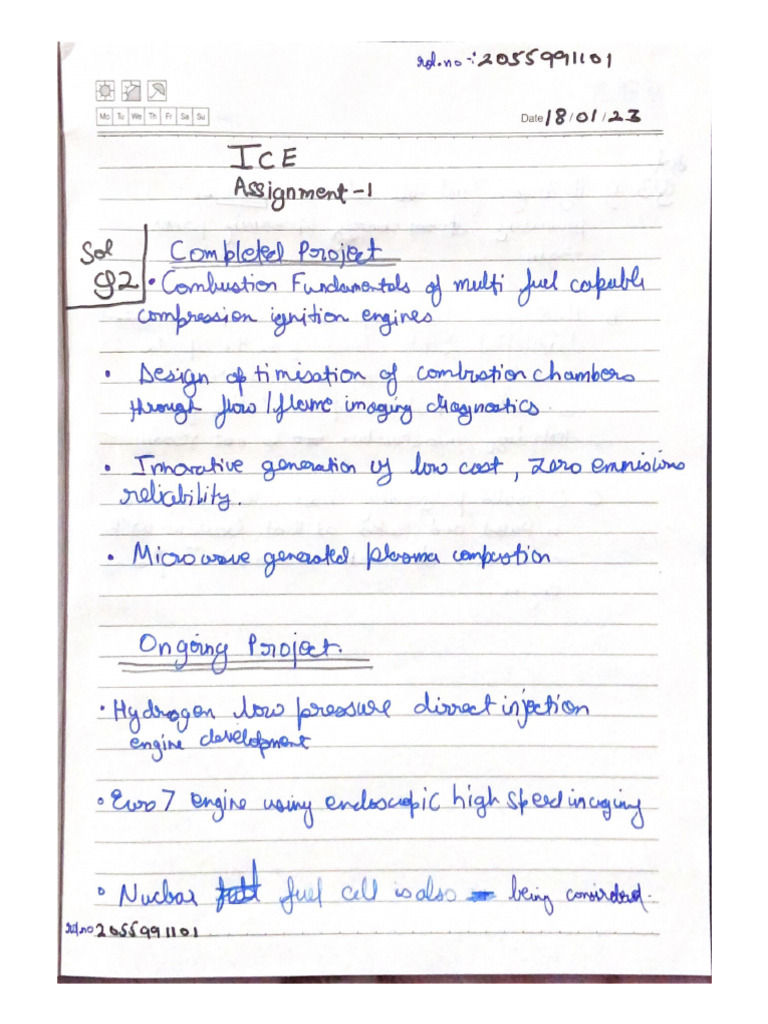 rol.no-:2055991101
Mo Tu We Th Fr Sa Su
Date 18/01/23
ICE
Assignment-1
Sol
Q2
Completed Project
• Combustion Fundamentals of multi fuel capable
compression ignition engines
• Design optimisation of combustion chambers
through flow/flame imaging diagnostics.
• Innovative generation of low cost, zero emnisions
reliability.
• Microwave generated plasma combustion
Ongoing Project.
• Hydrogen low pressure dirrect injection
engine development
• Euro 7 engine using endoscopic high speed imaging
• Nuclear fuel cell is also being considered.
rol.no 2055991101